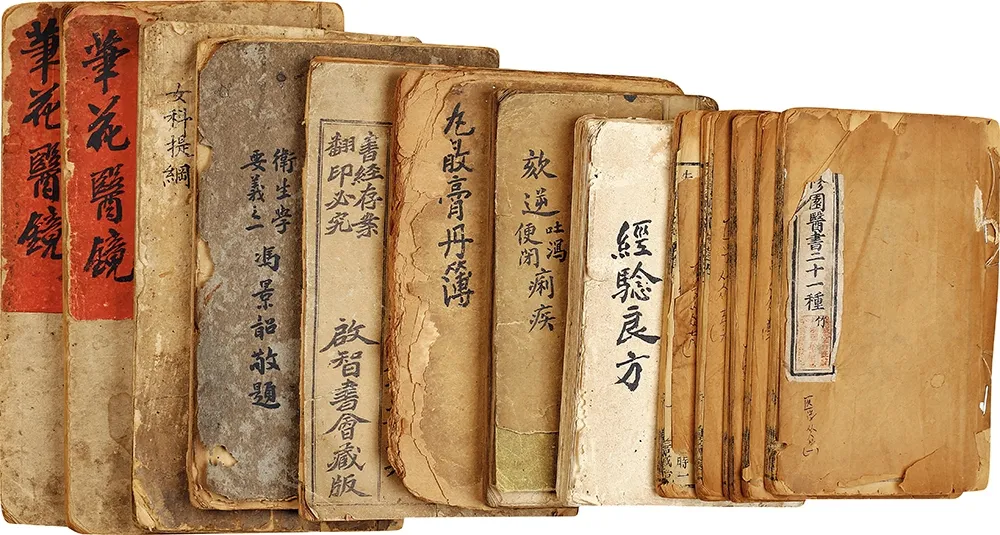 筆花醫鏡
筆花醫鏡
女科提綱
衛生學
要義
馮景韶敬題
書經存案
翻印必究
啟智書會藏版
丸散膏丹簿
欬逆吐瀉便閉痢疾
經驗良方
修園醫書二十一種 竹